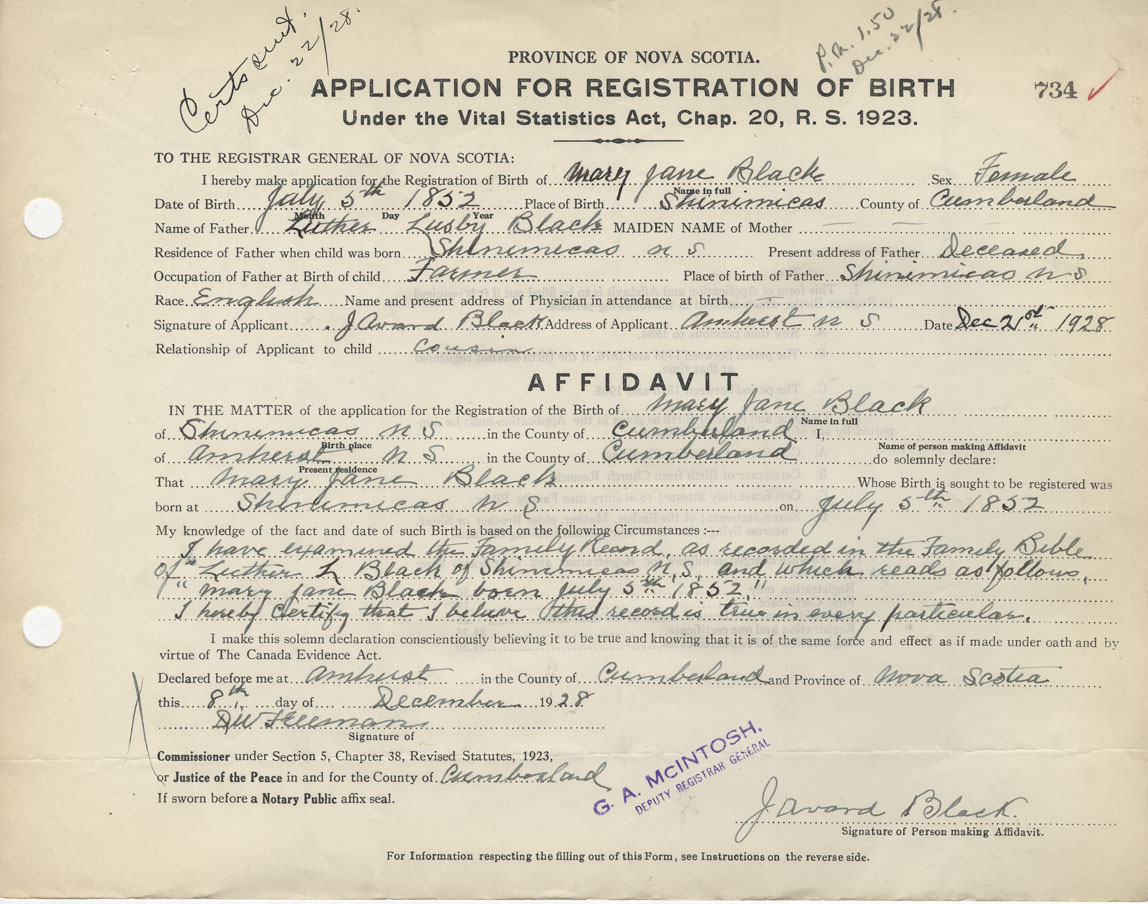 Certs sent.
Dec. 22/28.
P.M. 1.50
Dec. 22/28.
PROVINCE OF NOVA SCOTIA.
APPLICATION FOR REGISTRATION OF BIRTH
734
Under the Vital Statistics Act, Chap. 20, R. S. 1923.
TO THE REGISTRAR GENERAL OF NOVA SCOTIA:
I hereby make application for the Registration of Birth of Mary Jane Black Sex Female
Name in full
Date of Birth July 5th 1852 Place of Birth Shinimicas County of Cumberland
Month Day Year
Name of Father Luther Lusby Black MAIDEN NAME of Mother
Residence of Father when child was born Shinimicas N S Present address of Father Deceased
Occupation of Father at Birth of child Farmer Place of birth of Father Shinimicas N S
Race English Name and present address of Physician in attendance at birth
Signature of Applicant J Avard Black Address of Applicant Amherst N S Date Dec 21st 1928
Relationship of Applicant to child cousin
AFFIDAVIT
IN THE MATTER of the application for the Registration of the Birth of Mary Jane Black
Name in full
of Shinimicas N S in the County of Cumberland I,
Birth place Name of person making Affidavit
of Amherst N S in the County of Cumberland do solemnly declare:
Present residence
That Mary Jane Black Whose Birth is sought to be registered was
born at Shinimicas N S on July 5th 1852
My knowledge of the fact and date of such Birth is based on the following Circumstances :---
I have examined the Family Record, as recorded in the Family Bible
of "Luther L Black of Shinimicas N.S. and which reads as follows,
"Mary Jane Black born July 5th 1852."
I hereby Certify that I believe this record is true in every particular.
I make this solemn declaration conscientiously believing it to be true and knowing that it is of the same force and effect as if made under oath and by
virtue of The Canada Evidence Act.
Declared before me at Amherst in the County of Cumberland and Province of Nova Scotia
this 8th day of December 1928
DW Freeman
Signature of
Commissioner under Section 5, Chapter 38, Revised Statutes, 1923,
or Justice of the Peace in and for the County of Cumberland
If sworn before a Notary Public affix seal.
G. A. MCINTOSH,
DEPUTY REGISTRAR GENERAL
J Avard Black.
Signature of Person making Affidavit.
For Information respecting the filling out of this Form, see Instructions on the reverse side.